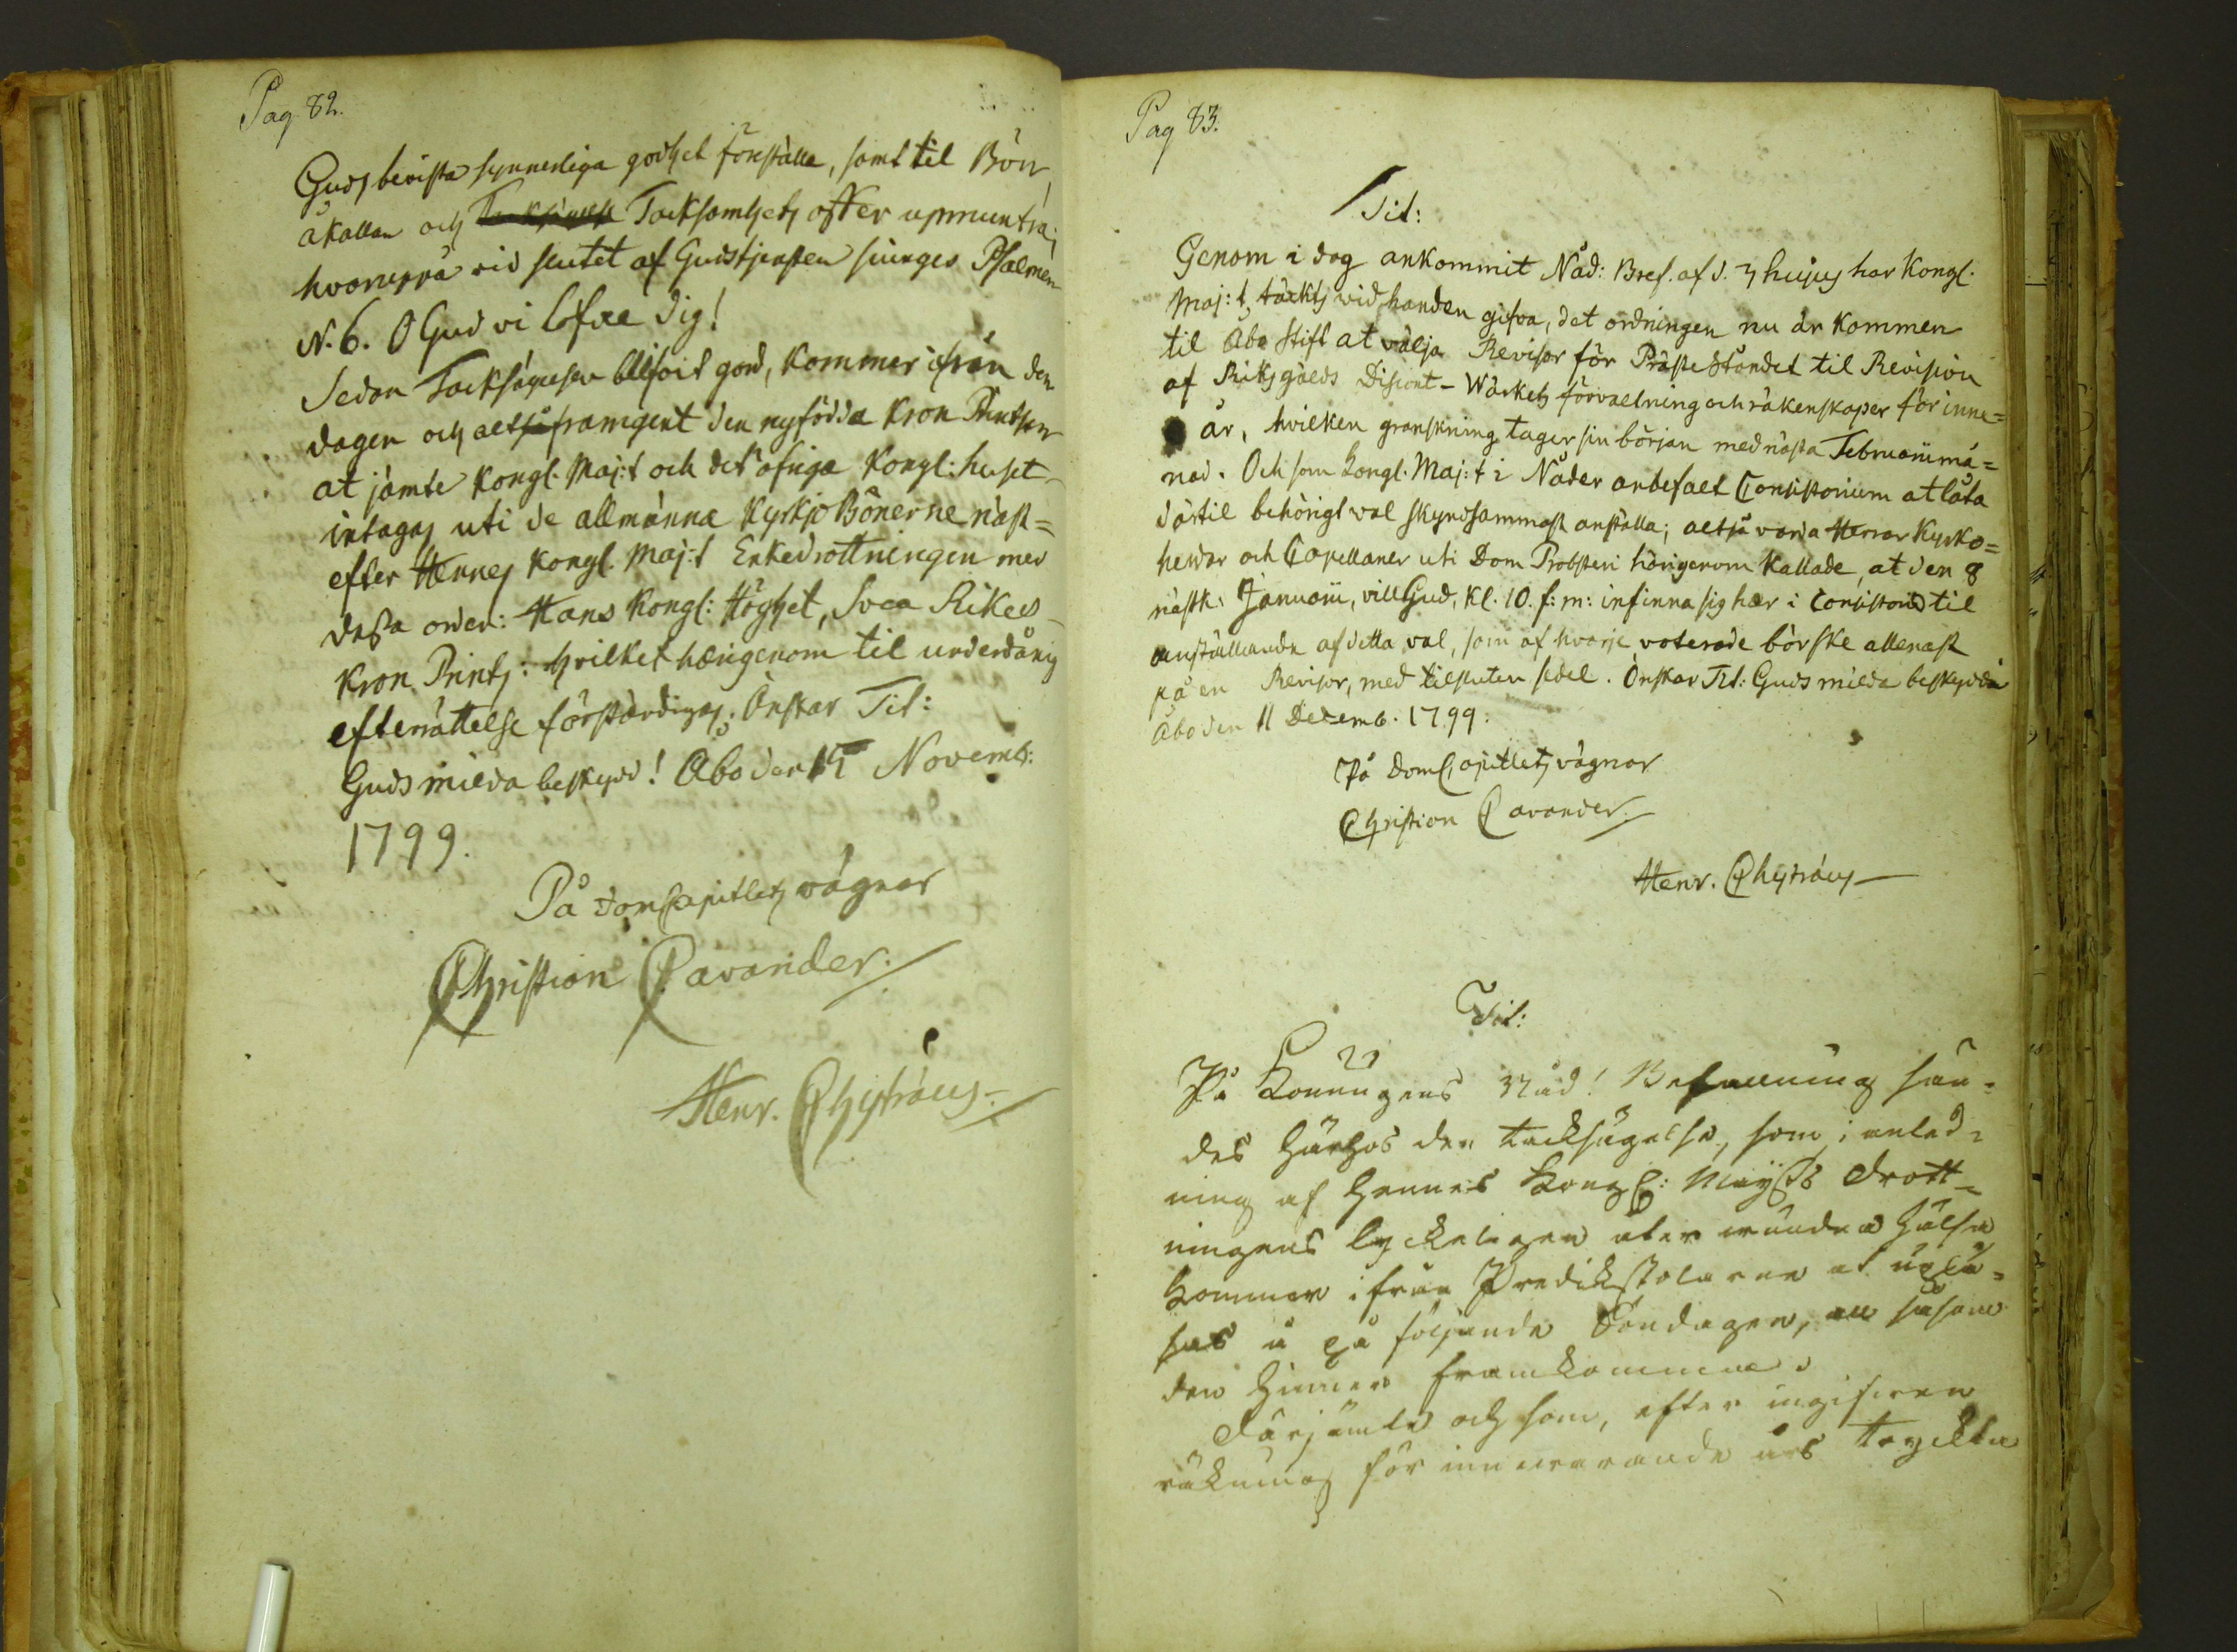 Pag. 82.
Guds bevista synnerliga godhet föreställa, samt til Bön,
åkallan och Tacksamhets offer upmuntra;
hvaruppå vid slutet af Gudstjensten siunges Psalmen
N. 6. O Gud vi lofve dig!
Sedan Tacksägelsen blifvit gord, kommer ifrån den
dagen och altså framgent den nyfödda Kron Printsen
at jämte Kongl. Maj:t och det öfriga Kongl: huset
intagas uti de allmänna KyrkjoBönerne näst=
efter Hennes Kongl. Maj:t Enkedrottningen med
dessa orden: Hans Kongl: Höghet, Svea Rikes
Kron Prints: hvilket härigenom til underdånig
efterrättelse förständigas; Önskar Tit:
Guds milda beskydd! Åbo den Novemb:
1799.
På DomCapitlets vägnar
Christian Cavander.
Henr. Chytræus.
Pag 83.
Tit:
Genom i dag ankommit Nåd: Bref. af d. 3 hujus har Kongl.
Maj:t täckts vid handen gifva, det ordningen nu är kommen
til Åbo Stift at välja Revisor för PrästeStåndet til Revision
af Riksgälds Discont-Wärkets förvaltning och räkenskaper för inne=
år, hvilken granskning tager sin början med nästa Februarii må=
nad. Och som Kongl. Maj:t i Nåder anbefalt Consistorium at låta
därtil behörigt val skyndsammast anställa; altså varda Herrar Kyrko=
herdar och Capellaner uti Dom Probsteri härigenom kallade, at den 8
nästk. Januarii, vill Gud, Kl. 10. f: m: infinna sig här i Consistorio til
anställande af detta val, som af hvarje voterade bör ske allenast
på en Revisor, med tilsluten sedel. Önskar Tit: Guds milda beskydd
Åbo den 11 Decemb. 1799.
På DomCapitlets vägnar
Christian Cavander.
Henr. Chytræus
Tit:
På Konungens Nåd! Befallning sän=
des härhos den tacksägelse, som i anled=
ning af Hennes Kongl: Maij:ts Drott=
ningens lyckeligen återvundna hälsa
kommer ifrån Predikstolarne at uplä=
sas å på följande Söndagen, såsom
den hinner framkomma.
Därjämte och som, efter ingifven
räkning för innevarande års tryckta